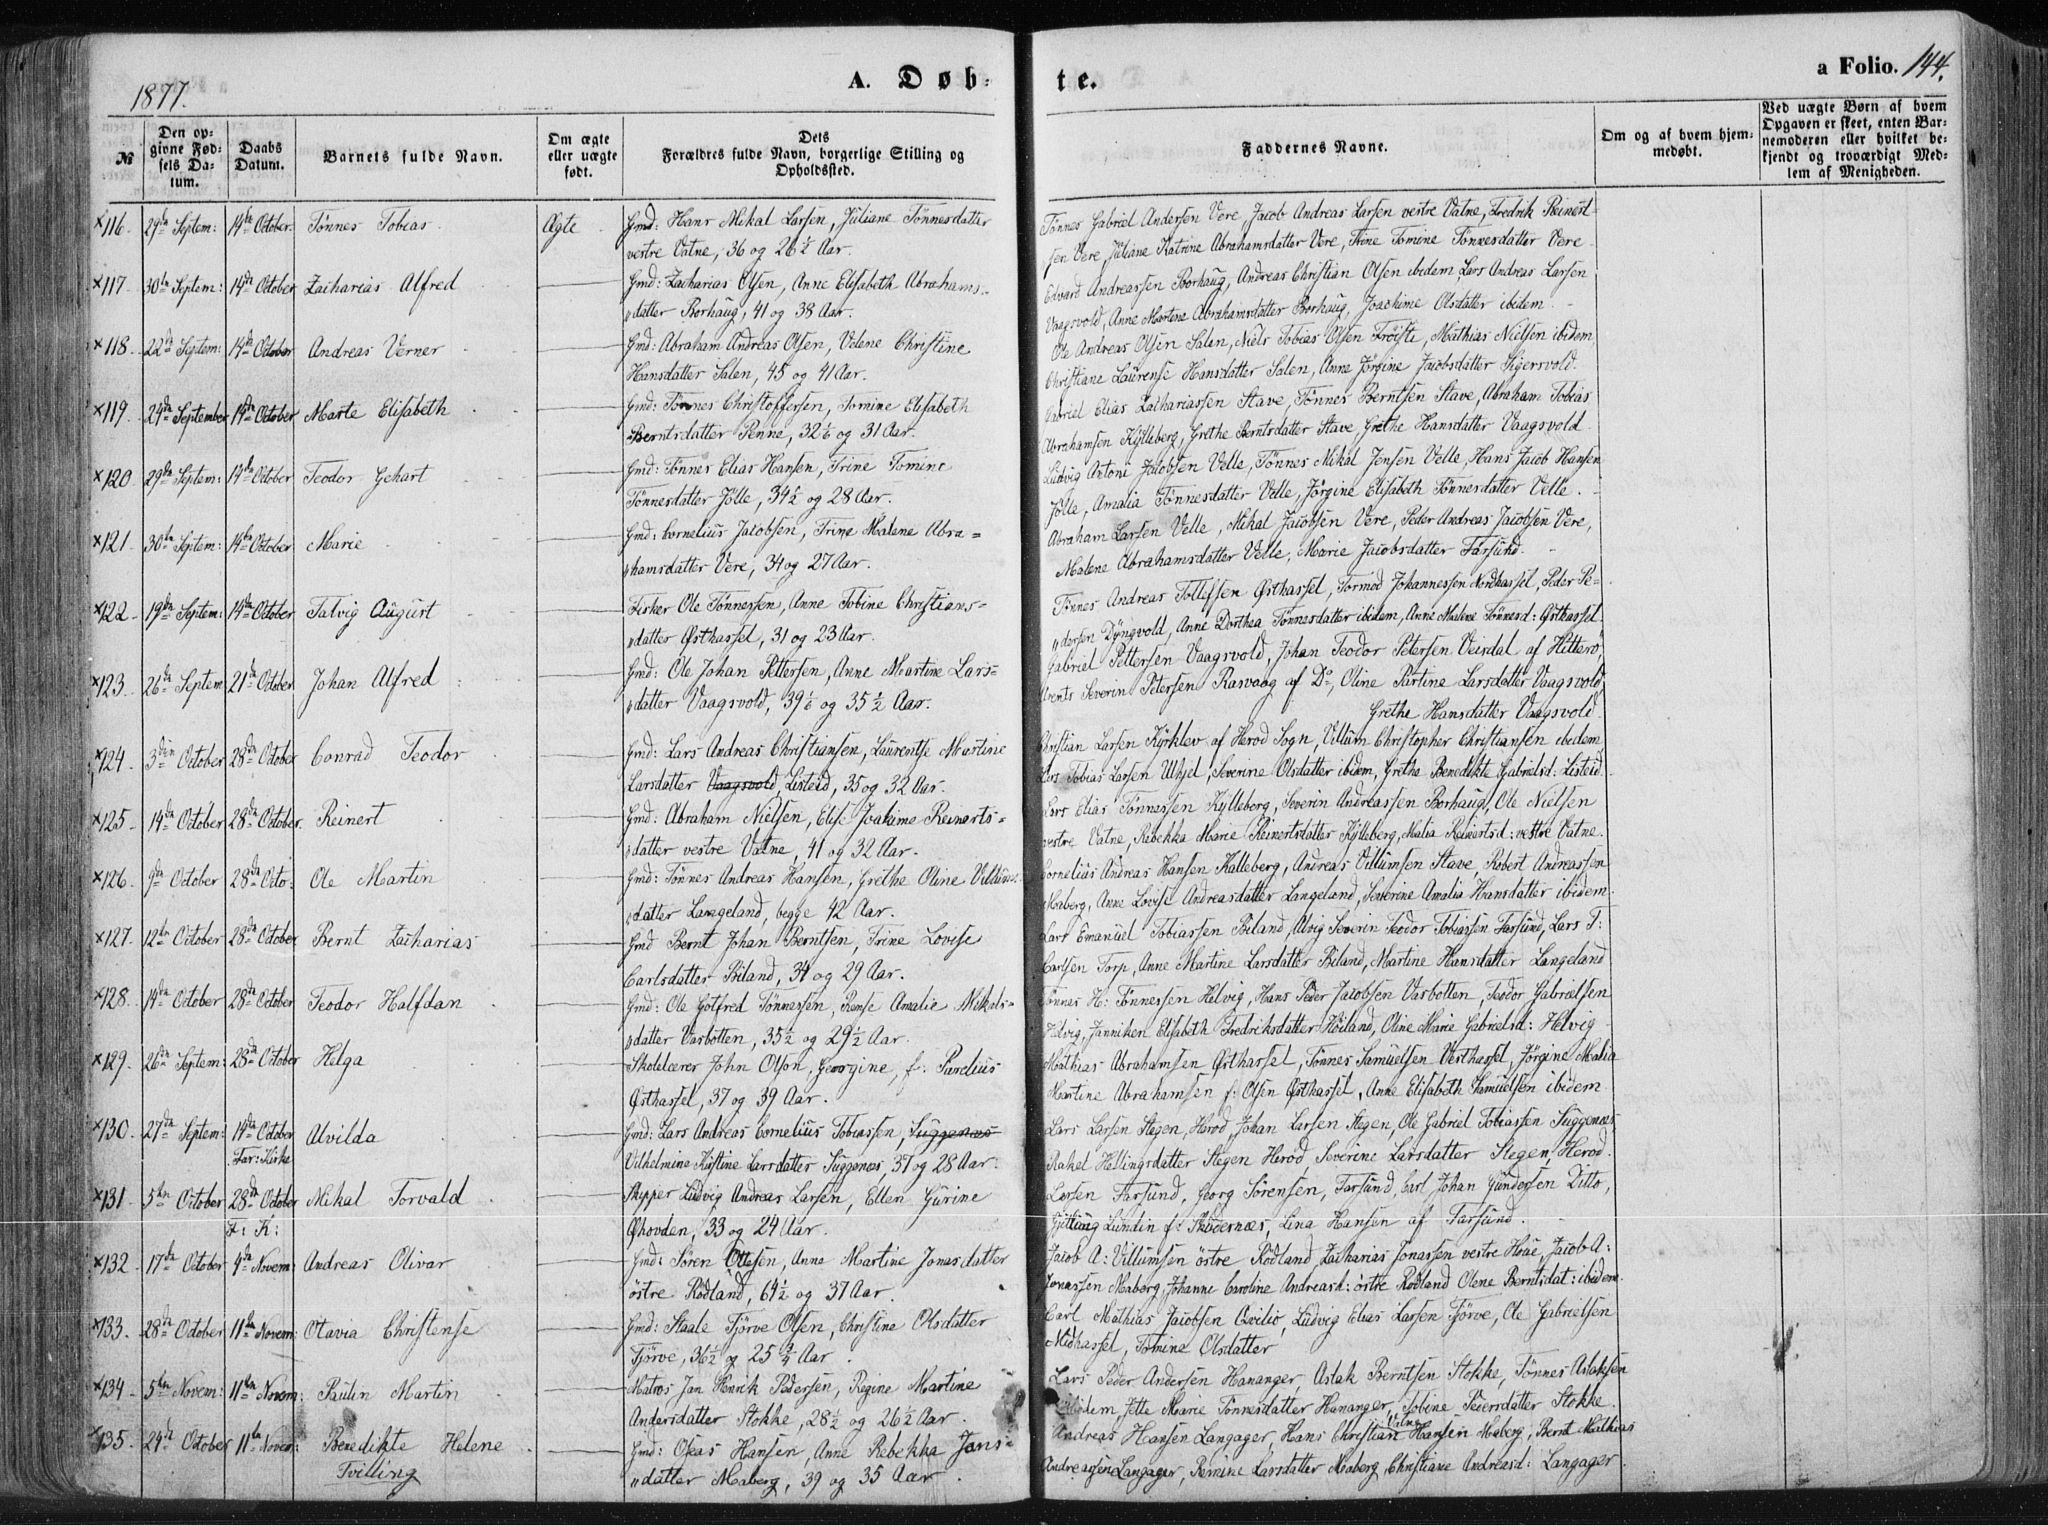 1877.
A. Døb-
te.
a Folio. 144.
№
Den op-
givne Fød-
sels Da-
tum.
Daabs
Datum.
Barnets fulde Navn.
Om ægte
eller uægte
født.
Dets
Forældres fulde Navn, borgerlige Stilling og
Opholdssted.
Faddernes Navne.
Om og af hvem hjem-
medøbt.
Ved uægte Børn af hvem
Opgaven er skeet, enten Bar-
nemoderen eller hvilket be-
kjendt og troværdigt Med-
lem af Menigheden.
×116. 29de Septem: 14de October. Tönnes Tobias. Ægte Gmd: Hans Mikal Larsen, Juliane Tönnesdatter
vestre Vatne, 36 og 26½ Aar.
Tönnes Gabriel Andersen Vere, Jacob Andreas Larsen vestre Vatne, Fredrik Reinert-
sen Vere, Juliane Katrine Abrahamsdatter Vere, Trine Tomine Tönnesdatter Vere.
×117. 30te Septem: 14de October Zacharias Alfred Gmd: Zacharias Olsen, Anne Elisabeth Abrahams-
datter Borhaug, 41 og 38 Aar.
Edvard Andreassen Borhaug, Andreas Christian Olsen ibidem, Lars Andreas Larsen
Vaagsvold, Anne Martene Abrahamsdatter Borhaug, Joachime Olsdatter ibidem.
×118 22de Septem: 14de October Andreas Verner Gmd: Abraham Andreas Olsen, Velene Christine
Hansdatter Salen, 45 og 41 Aar.
Ole Andreas Olsen Salen, Niels Tobias Olsen Tröjste, Mathias Nielsen ibidem
Christiane Laurense Hansdatter Salen, Anne Jörgine Jacobsdatter Sigersvold.
×119. 24de September 14de October Marte Elisabeth Gmd: Tönnes Christoffersen, Tomine Elisabeth
Berntsdatter Penne, 32 og 31 Aar.
Gabriel Elias Zachariassen Stave, Tönnes Berntsen Stave, Abraham Tobias
Abrahamsen Kjlleberg, Grethe Berntsdatter Stave, Grethe Hansdatter Vaagsvold.
×120 29de Septem: 14de October Teodor Gehart Gmd: Tönnes Elias Hansen, Trine Tomine
Tönnesdatter Jölle, 34½ og 28 Aar.
Ludvig Antoni Jacobsen Velle, Tönnes Mikal Jensen Velle, Hans Jacob Hansen
Jölle, Amalia Tönnesdatter Velle, Jörgine Elisabeth Tönnesdatter Velle.
×121. 30te Septem: 14de October Marie Gmd: Cornelius Jacobsen, Trine Malene Abra-
hamsdatter Vere, 34 og 27 Aar.
Abraham Larsen Velle, Mikal Jacobsen Vere, Peder Andreas Jacobsen Vere,
Malene Abrahamsdatter Velle, Marie Jacobsdatter Farsund.
×122. 19de Septem: 14de October Talvig August Fisker Ole Tönnessen, Anne Tobine Christians-
datter Østhassel, 31 og 23 Aar.
Tönnes Andreas Tollefsen Østhassel, Tormod Johannessen Nordhassel, Peder Pe-
dersen Dyngvold, Anne Dorthea Tönnesdatter ibidem, Anne Malene Tönnesd: Østhassel.
×123. 26de Septem 21de October Johan Alfred Gmd: Ole Johan Pettersen, Anne Martine Lars-
datter Vaagsvold, 39 og 35½ Aar.
Gabriel Pettersen Vaagsvold, Johan Teodor Petersen Veisdal af Hitterö,
Severin Petersen Rasvaag af Do, Oline Partine Larsdatter Vaagsvold,
Grethe Hansdatter Vaagsvold.
×124. 3die October 28de October Conrad Teodor Gmd: Lars Andreas Christiansen, Laurentse Martine
Larsdatter Vaagsvold, Listeid, 35 og 32 Aar.
Christian Larsen Kjrklev af Herod Sogn, Villum Christopher Christiansen ibidem
Lars Tobias Larsen Ulhjel, Severine Olsdatter ibidem, Grethe Benedikte Gabrielsd: Listeid.
×125. 14de October 28de October. Reinert Gmd: Abraham Nielsen, Elise Joakime Reinerts-
datter vestre Vatne, 41 og 32 Aar.
Lars Elias Tönnessen Kjlleberg, Severin Andreassen Borhaug, Ole Nielsen
vestre Vatne, Rebekka Marie Reinertsdatter Kjlleberg, Malia Reinertsd: vestre Vatne.
×126. 9de October 28de Octo: Ole Martin Gmd: Tönnes Andreas Hansen, Grethe Oline Villums-
datter Langeland, begge 42 Aar.
Cornelius Andreas Hansen Kalleberg, Andreas Villumsen Stave, Robert Andreassen
Maberg, Anne Lovise Andreasdatter Langeland, Severine Amalia Hansdatter ibidem.
×127. 12te October 28de October Bernt Zacharias Gmd Bernt Johan Berntsen, Trine Lovise
Carlsdatter Biland, 34 og 29 Aar.
Lars Emanuel Tobiassen Biland, Alvig Severin Teodor Tobiassen Farsund, Lars T:
Carlsen Torp, Anne Martine Larsdatter Biland, Martine Hansdatter Langeland
×128. 14de October 28de October Teodor Halfdan Gmd: Ole Gotfred Tönnessen, Remse Amalie Mikals-
datter Varbotten, 35½ og 29½ Aar.
Tönnes H: Tönnessen Helvig, Hans Peder Jacobsen Varbotten, Teodor Gabrielsen
Helvig, Janniken Elisabeth Fredriksdatter Höiland, Oline Marie Gabrielsd: Helvig
×129. 26de Septem: 28de October Helga Skolelærer John Olson, Georgine, f. Parelius
Østhassel, 37 og 39 Aar.
Mathias Abrahamsen Østhassel, Tönnes Samuelsen Vesthassel, Jörgine Malia
Martine Abrahamsen f: Olsen Østhassel, Anne Elisabeth Samuelsen ibidem.
×130. 27de Septem: 14de October Alvilda Gmd: Lars Andreas Cornelius Tobiassen, Suggenæs
Far: Kirke Vilhelmine Kristine Larsdatter Suggenæs 37 og 28 Aar.
Lars Larsen Stegen, Herod, Johan Larsen Stegen, Ole Gabriel Tobiassen Suggenæs,
Rakel Hellingsdatter Stegen Herod, Severine Larsdatter Stegen, Herod.
×131. 5te October 28de October Mikal Torvald Skipper Ludvig Andreas Larsen, Ellen Gurine
F: K: Øhovden, 33 og 24 Aar.
Larsen Farsund, Georg Sörensen, Farsund, Carl Johan Gundersen Ditto,
Lundin f: Skodernæs, Lina Hansen af Farsund.
×132. 17de October 4de Novem: Andreas Olivar Gmd: Sören Ottesen, Anne Martine Jonasdatter
östre Rödland, 64½ og 37 Aar.
Jacob A: Villumsen östre Rödland Zacharias Jonassen vestre Hoae, Jacob A:
Jonassen Maberg, Johanne Caroline Andreasd: östre Rödland Olene Berntsdat: ibidem.
×133. 28de October 11te Novem: Otavia Christense Gmd: Staale Tjörve Olsen, Christine Olsdatter
Tjörve, 36½ og 25¾ Aar.
Carl Mathias Jacobsen Qvilio, Ludvig Elias Larsen Tjörve, Ole Gabrielsen
Midhassel, Tomine Olsdatter
×134 5te Novem: 11te Novem: Paulin Martin Matros Jan Henrik Pedersen, Regine Martine
Andersdatter Stokke, 28½ og 26½ Aar.
Lars Peder Andersen Hananger, Aslak Berntsen Stokke, Tönnes Aslaksen
ibidem, Jette Marie Tönnesdatter Hananger, Tobine Pedersdatter Stokke.
×135. 24de October 11te Novem: Benedikte Helene Gmd: Oleas Hansen, Anne Rebekka Jans-
Tvilling datter Maberg, 39 og 35 Aar.
Andreas Hansen Langager, Hans Christian Hansen Maberg, Bernt Mathias
Andreassen Langager, Bernine Larsdatter Maaberg, Christiane Andreasd: Langager.